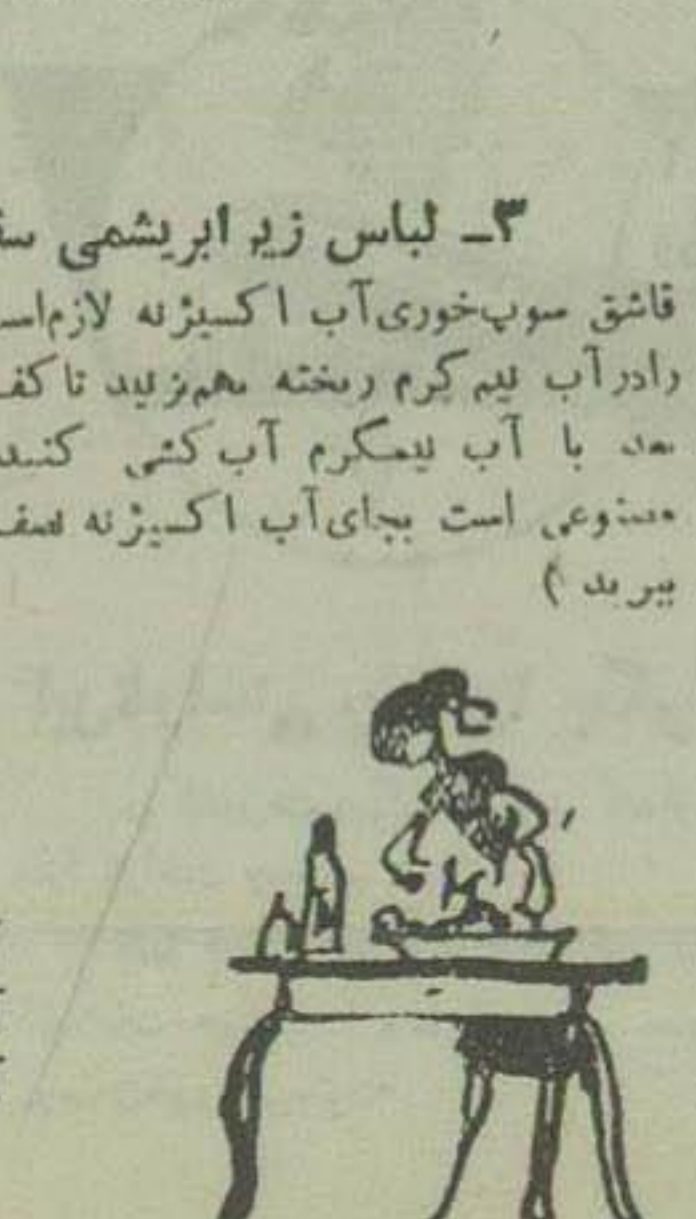 ۳ـ لباس زیر ابریشمی سف
قاشق سوپ‌خوری آب اکسیژنه لازم‌اس
را در آب نیم گرم ریخته بهم‌زنید تا کف
بعد با آب نیمگرم آب‌کشی کنید
مصنوعی است بجای آب اکسیژنه
ببرید )